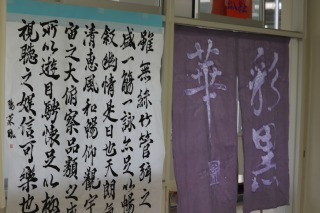 彩墨
華
雖無絲竹管絃之
盛一觴一詠亦足以暢
敘幽情是日也天朗氣
清惠風和暢仰觀宇
宙之大俯察品類之盛
所以遊目騁懷足以極
視聽之娛信可樂也